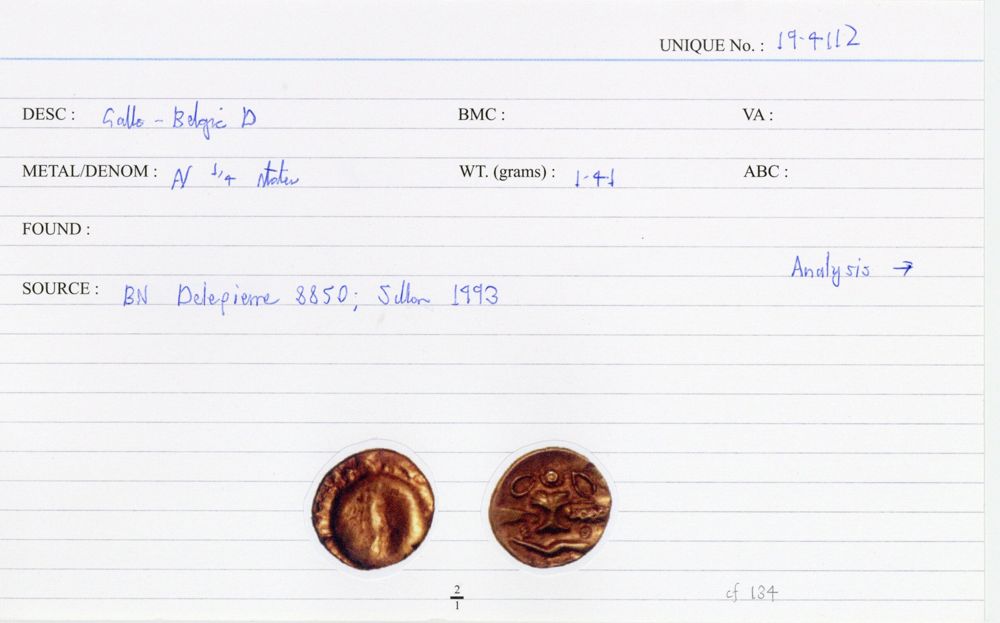 UNIQUE No. : 19-4112
DESC : Gallo-Belgic D BMC : VA :
METAL/DENOM : N 1/4 stater WT. (grams) : 1.41 ABC :
FOUND :
Analysis →
SOURCE : BN Delepierre 8850; Sillon 1993
2/1
cf 134